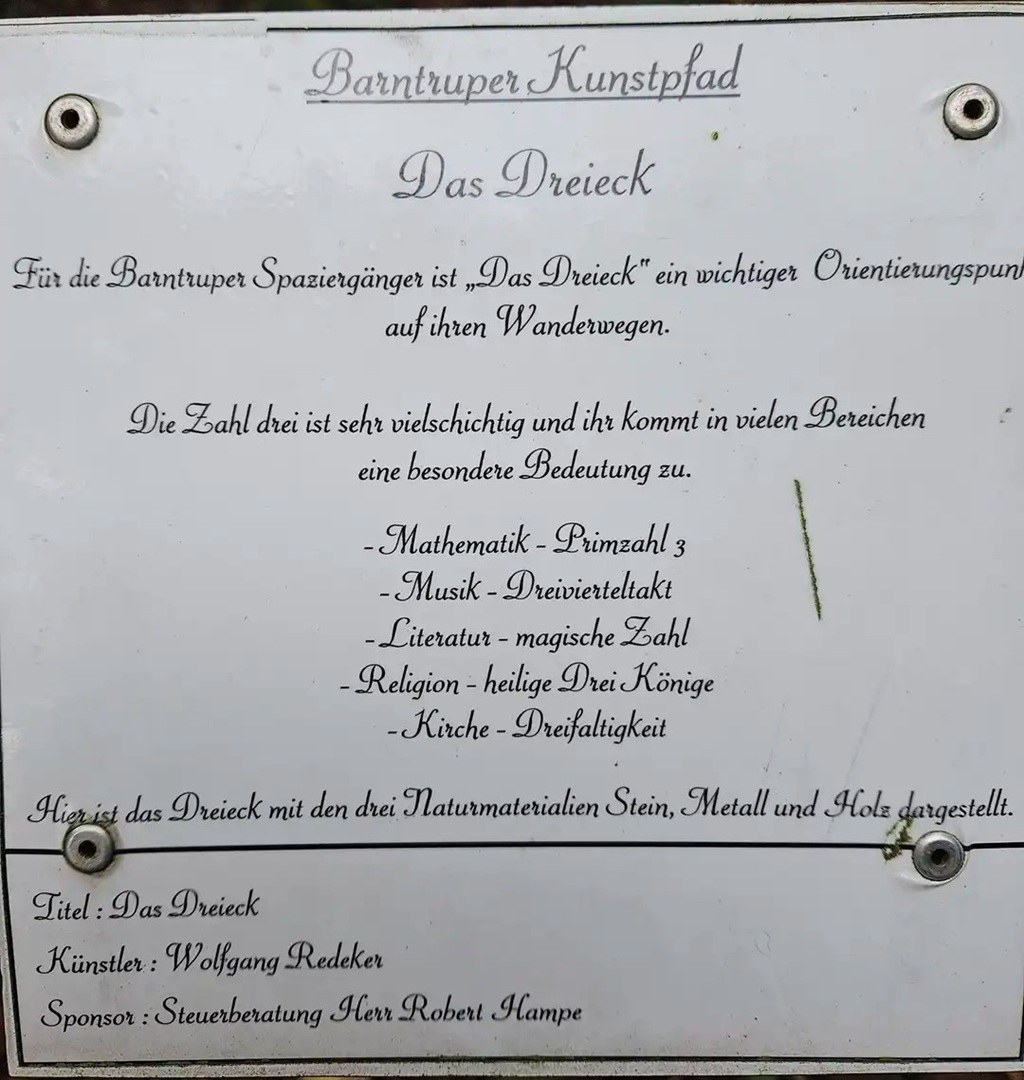 Barntruper Kunstpfad
Das Dreieck
Für die Barntruper Spaziergänger ist „Das Dreieck" ein wichtiger Orientierungspunk
auf ihren Wanderwegen.
Die Zahl drei ist sehr vielschichtig und ihr kommt in vielen Bereichen
eine besondere Bedeutung zu.
- Mathematik - Primzahl 3
- Musik - Dreivierteltakt
- Literatur - magische Zahl
- Religion - heilige Drei Könige
- Kirche - Dreifaltigkeit
Hier ist das Dreieck mit den drei Naturmaterialien Stein, Metall und Holz dargestellt.
Titel : Das Dreieck
Künstler : Wolfgang Redeker
Sponsor : Steuerberatung Herr Robert Hampe